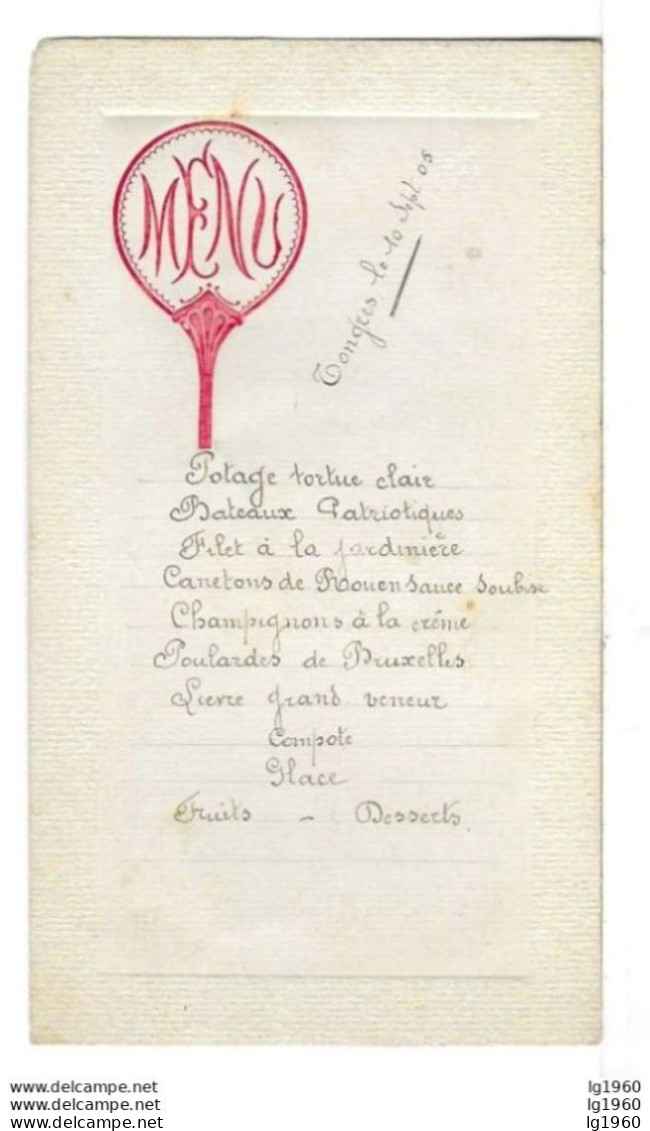 MENU
Tongres le 10 Sept 05
Potage tortue clair
Bateaux Patriotiques
Filet à la jardinière
Canetons de Rouen sauce Soubise
Champignons à la crême
Poulardes de Bruxelles
Lievre grand veneur
Compote
Glace
Fruits - Desserts.
www.delcampe.net lg1960
www.delcampe.net lg1960
www.delcampe.net lg1960